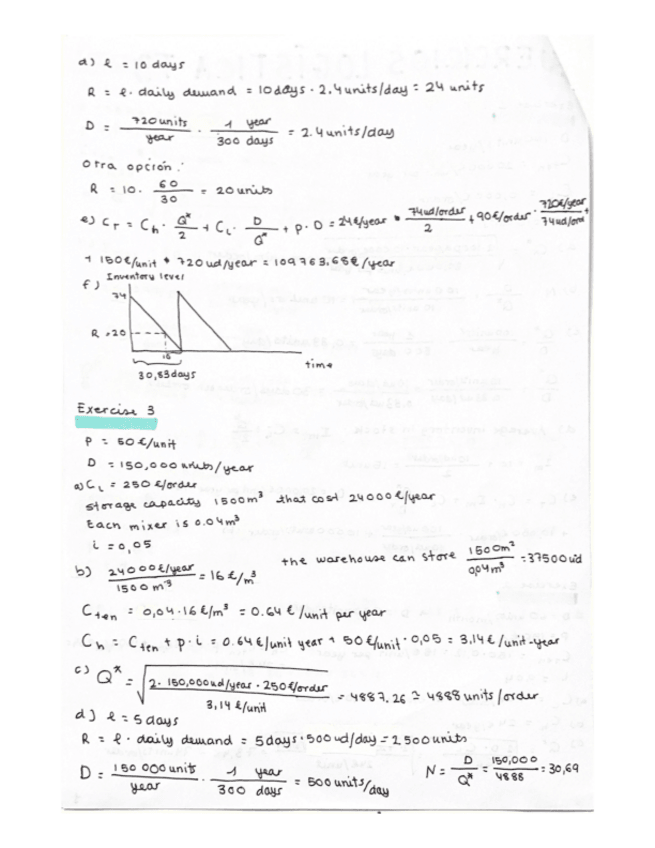 d) l = 10 days
R = l · daily demand = 10 days · 2.4 units/day = 24 units
D = 720 units/year · 1 year/300 days = 2.4 units/day
Otra opción:
R = 10 · 60/30 = 20 units
e) Cr = Ch · Q*/2 + CL · D/Q* + p · D = 24€/year * 74ud/order/2 + 90€/order · 720€/year/74ud/ord +
+ 150€/unit * 720 ud/year = 109763,68€/year
f) Inventory level
74
R = 20
10
time
30,83 days
Exercise 3
P = 50€/unit
D = 150,000 units/year
a) CL = 250 €/order
storage capacity 1500m³ that cost 24000€/year
Each mixer is 0.04m³
i = 0,05
b) 24000€/year/1500 m³ = 16 €/m³ the warehouse can store 1500m²/0,04m³ = 37500 ud
Cten = 0,04 · 16 €/m³ = 0.64 € /unit per year
Ch = Cten + p · i = 0.64 €/unit year + 50€/unit · 0,05 = 3,14€/unit-year
c) Q* = √ 2 · 150,000ud/year · 250€/order/3,14 €/unit = 4887.26 ≃ 4888 units/order
d) l = 5 days
R = l · daily demand = 5 days · 500 ud/day = 2.500 units
D = 150 000 units/year · 1 year/300 days = 500 units/day N = D/Q* = 150,000/4888 = 30,69